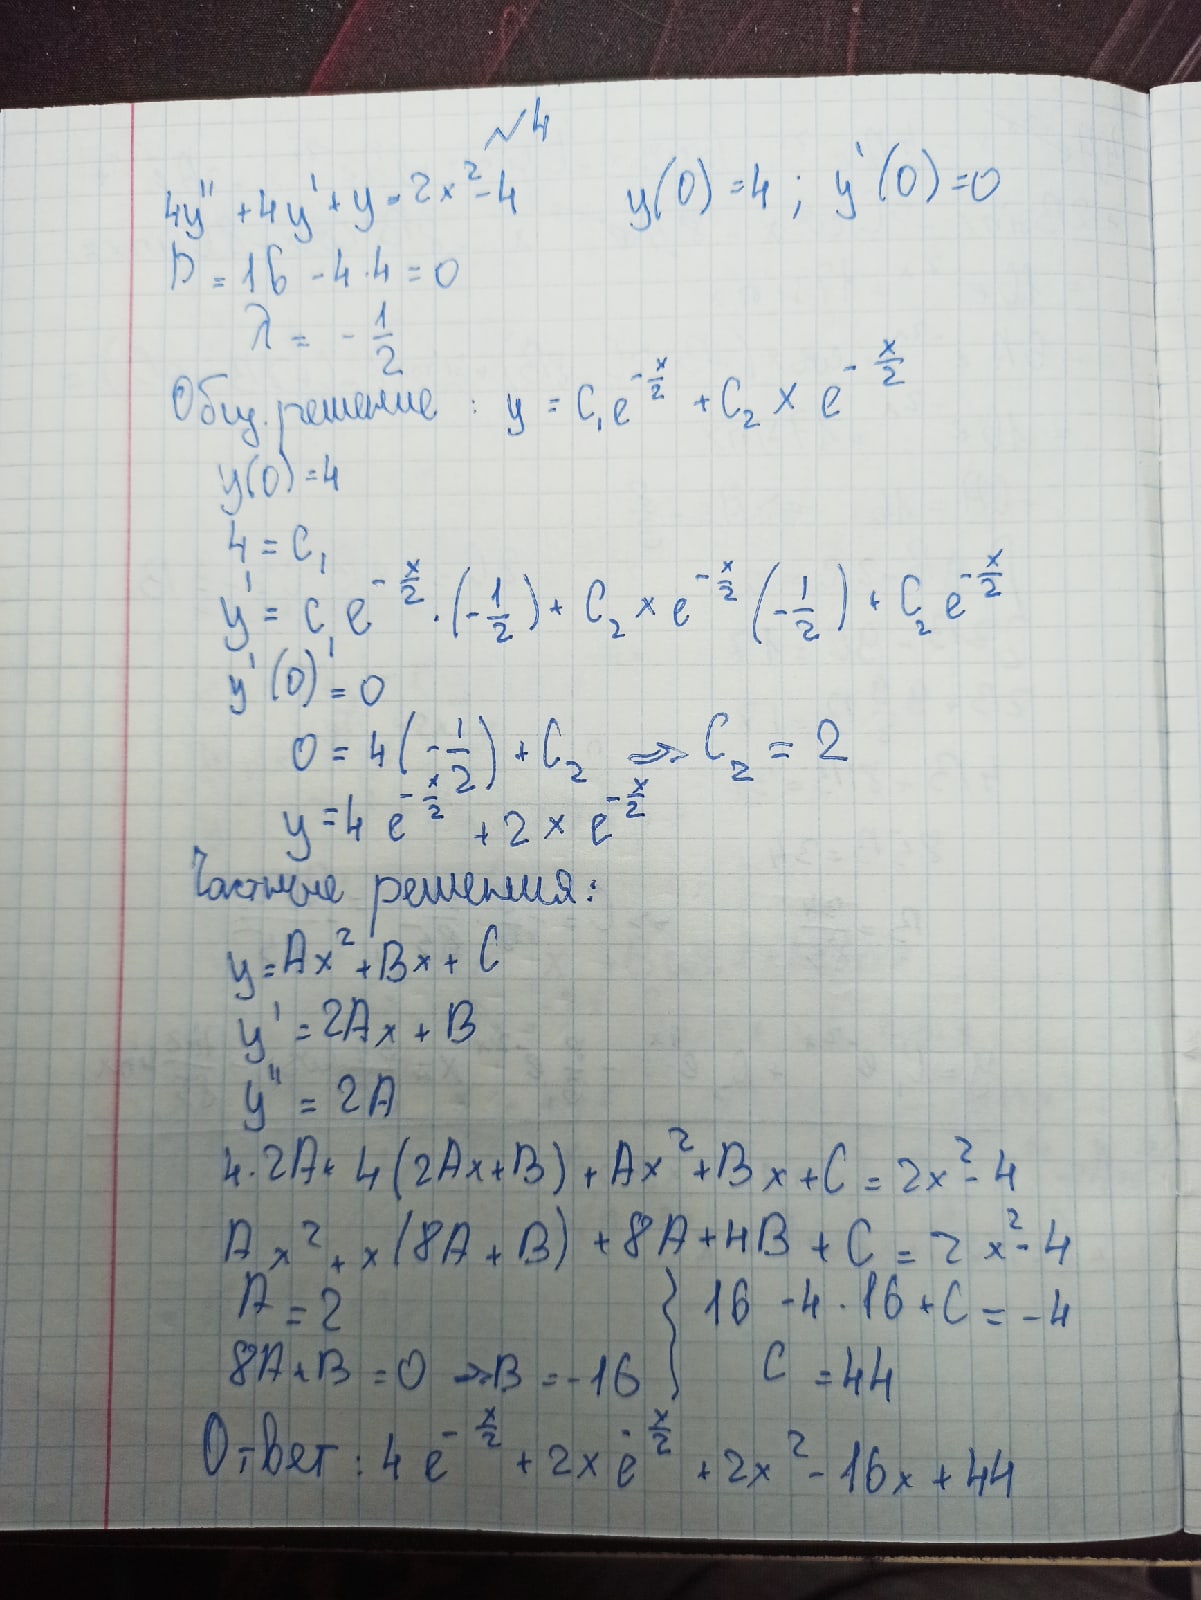 №4
4y'' + 4y' + y = 2x² - 4    y(0) = 4 ; y'(0) = 0
D = 16 - 4·4 = 0
λ = - 1/2
Общ. решение : y = C₁e^(-x/2) + C₂ x e^(-x/2)
y(0) = 4
4 = C₁
y' = C₁ e^(-x/2) · (-1/2) + C₂ x e^(-x/2) (-1/2) + C₂ e^(-x/2)
y'(0) = 0
0 = 4(-1/2) + C₂ ⇒ C₂ = 2
y = 4 e^(-x/2) + 2 x e^(-x/2)
Частные решения:
y = Ax² + Bx + C
y' = 2Ax + B
y'' = 2A
4·2A + 4(2Ax + B) + Ax² + Bx + C = 2x² - 4
Ax² + x(8A + B) + 8A + 4B + C = 2x² - 4
A = 2    } 16 - 4·16 + C = -4
8A + B = 0 → B = -16    } C = 44
Ответ : 4 e^(-x/2) + 2x e^(-x/2) + 2x² - 16x + 44